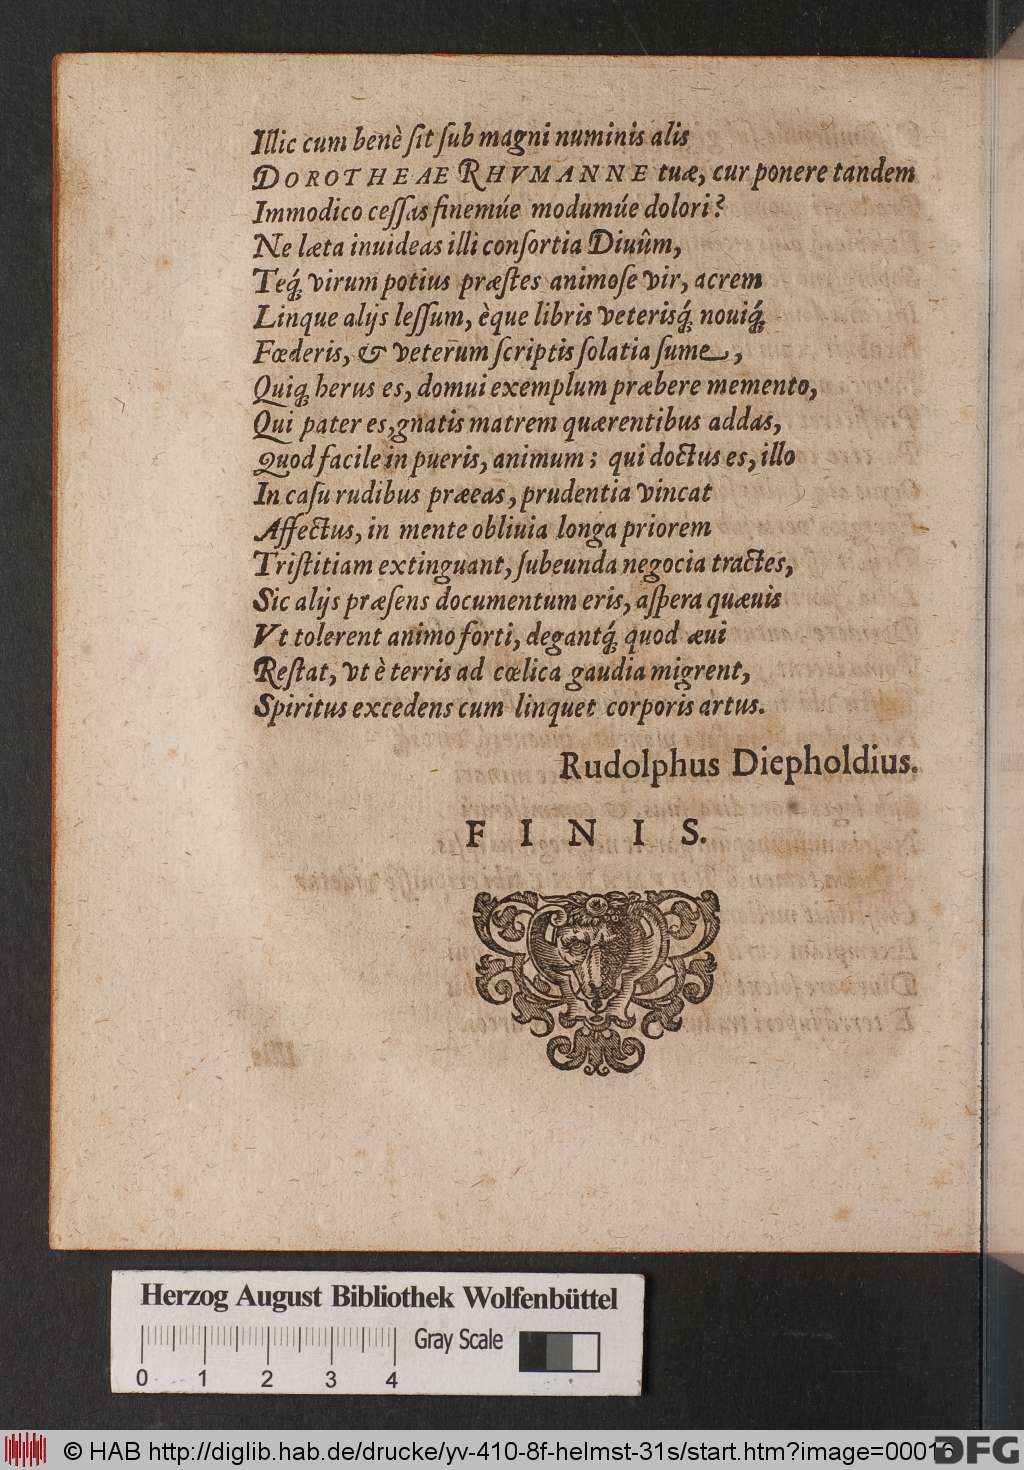 Illic cum benè ſit ſub magni numinis alis
DOROTHEAE RHVMANNE tuæ, cur ponere tandem
Immodico ceſſas finemúe modumúe dolori?
Ne læta inuideas illi conſortia Diuûm,
Teq́; virum potius præſtes animoſe vir, acrem
Linque alijs leſſum, èque libris veterisq́; nouiq́;
Fœderis, & veterum ſcriptis ſolatia ſume,
Quiq; herus es, domui exemplum præbere memento,
Qui pater es, gnatis matrem quærentibus addas,
Quod facile in pueris, animum; qui doctus es, illo
In caſu rudibus præeas, prudentia vincat
Affectus, in mente obliuia longa priorem
Triſtitiam extinguant, ſubeunda negocia tractes,
Sic alijs præſens documentum eris, aſpera quæuis
Vt tolerent animo forti, degantq́; quod æui
Reſtat, vt è terris ad cœlica gaudia migrent,
Spiritus excedens cum linquet corporis artus.
Rudolphus Diepholdius.
FINIS.
Herzog August Bibliothek Wolfenbüttel
Gray Scale
0 1 2 3 4
© HAB http://diglib.hab.de/drucke/yv-410-8f-helmst-31s/start.htm?image=00016
DFG